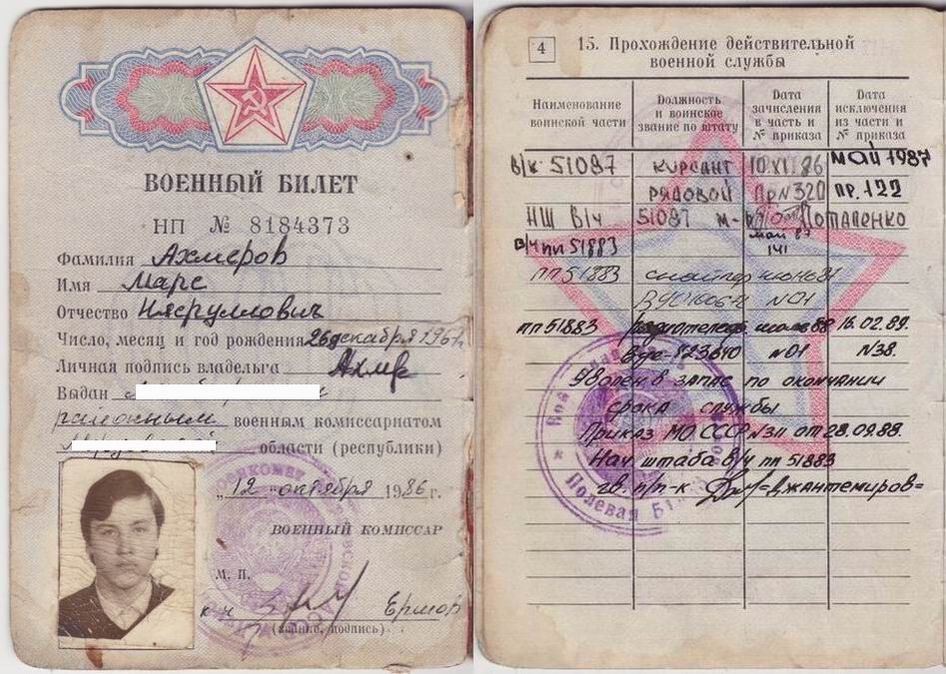 ВОЕННЫЙ БИЛЕТ
НП № 8184373
Фамилия Ахмеров
Имя Марс
Отчество
Число, месяц и год рождения 26 декабря 1967
Личная подпись владельца Ахмр
Выдан
районным военным комиссариатом
области (республики)
„12 октября 1986 г.
ВОЕННЫЙ КОМИССАР
М. П.
(звание, подпись)
4 15. Прохождение действительной
военной службы
Наименование
воинской части
Должность
и воинское
звание по штату
Дата
зачисления
в часть и
№ приказа
Дата
исключения
из части и
№ приказа
В/ч 51087 курсант 10.XI.86 май 1987
рядовой Пр N320 пр. 122
НШ В/ч 51087 м-р Потапенко
В/ч пп 51883 май 87
141
пп 51883 снайпер июнь 87
N01
пп 51883 88 16.02.89.
N01 N38.
Уволен в запас по окончании
срока службы
Приказ МО СССР N311 от 28.09.88.
Нач штаба в/ч пп 51883
гв. п/п-к =Джантемиров=
Полевая